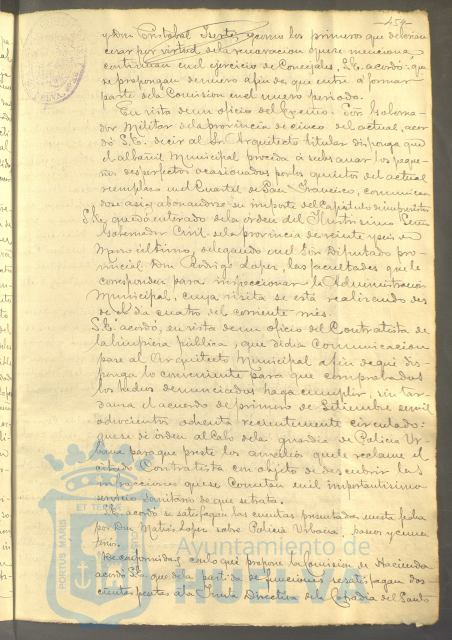 -459-
y Don Cristobal y como los primeros que debian
cesar por virtud de la renovacion que se menciona
continuan en el ejercicio de Concejales, S.E. acordó: que
se propongan de nuevo á fin de que entre á formar
parte de la Comision en el nuevo período.
En vista de un oficio del Excmo. Sor Goberna-
dor Militar de la provincia de cinco del actual, acor
dó S.E. decir al Sr. Arquitecto titular disponga que
el albañil Municipal proceda á subsanar los peque
ños desperfectos ocasionados por los quintos del actual
reemplazo en el Cuartel de San Francisco, comunican
dose asi y abonandose su importe del Capítulo de imprevistos
S.E. quedó enterado de la orden del Ilustrisimo Señor
Gobernador Civil de la provincia de veinte y seis de
Marzo último, delegando en el Sor Diputado pro-
vincial Don Rodrigo Lopez, las facultades que le
corresponden para inspeccionar la Administracion
Municipal, cuya visita se está realizando des
de el dia cuatro del corriente mes.
S.E. acordó, en vista de un oficio del Contratista de
la limpieza pública, que dicha Comunicacion
pase al Arquitecto Municipal á fin de que dis-
ponga lo conveniente para que comprobados
los hechos denunciados haga cumplir, sin tar
danza el acuerdo de primero de Setiembre de mil
ochocientos ochenta recientemente circulado:
que se dé orden al Cabo de la guardia de Policia Ur
bana para que preste los auxilios que le reclame el
citado Contratista con objeto de descubrir las
infracciones que se cometan en el importantisimo
servicio Sanitario de que se trata.
S.E. acordó se satisfagan las cuentas presentadas en esta fecha
por Don Matias Lopez sobre Policia Urbana, paseos y cemen
terio.
De conformidad con lo que propone la Comision de Hacienda
acordó S.E. que de la partida de funciones se satisfagan dos
cientas pesetas á la Junta Directiva de la Cofradia del Santo
PORTUS MARIS ET TERRAE
Ayuntamiento de
HUELVA